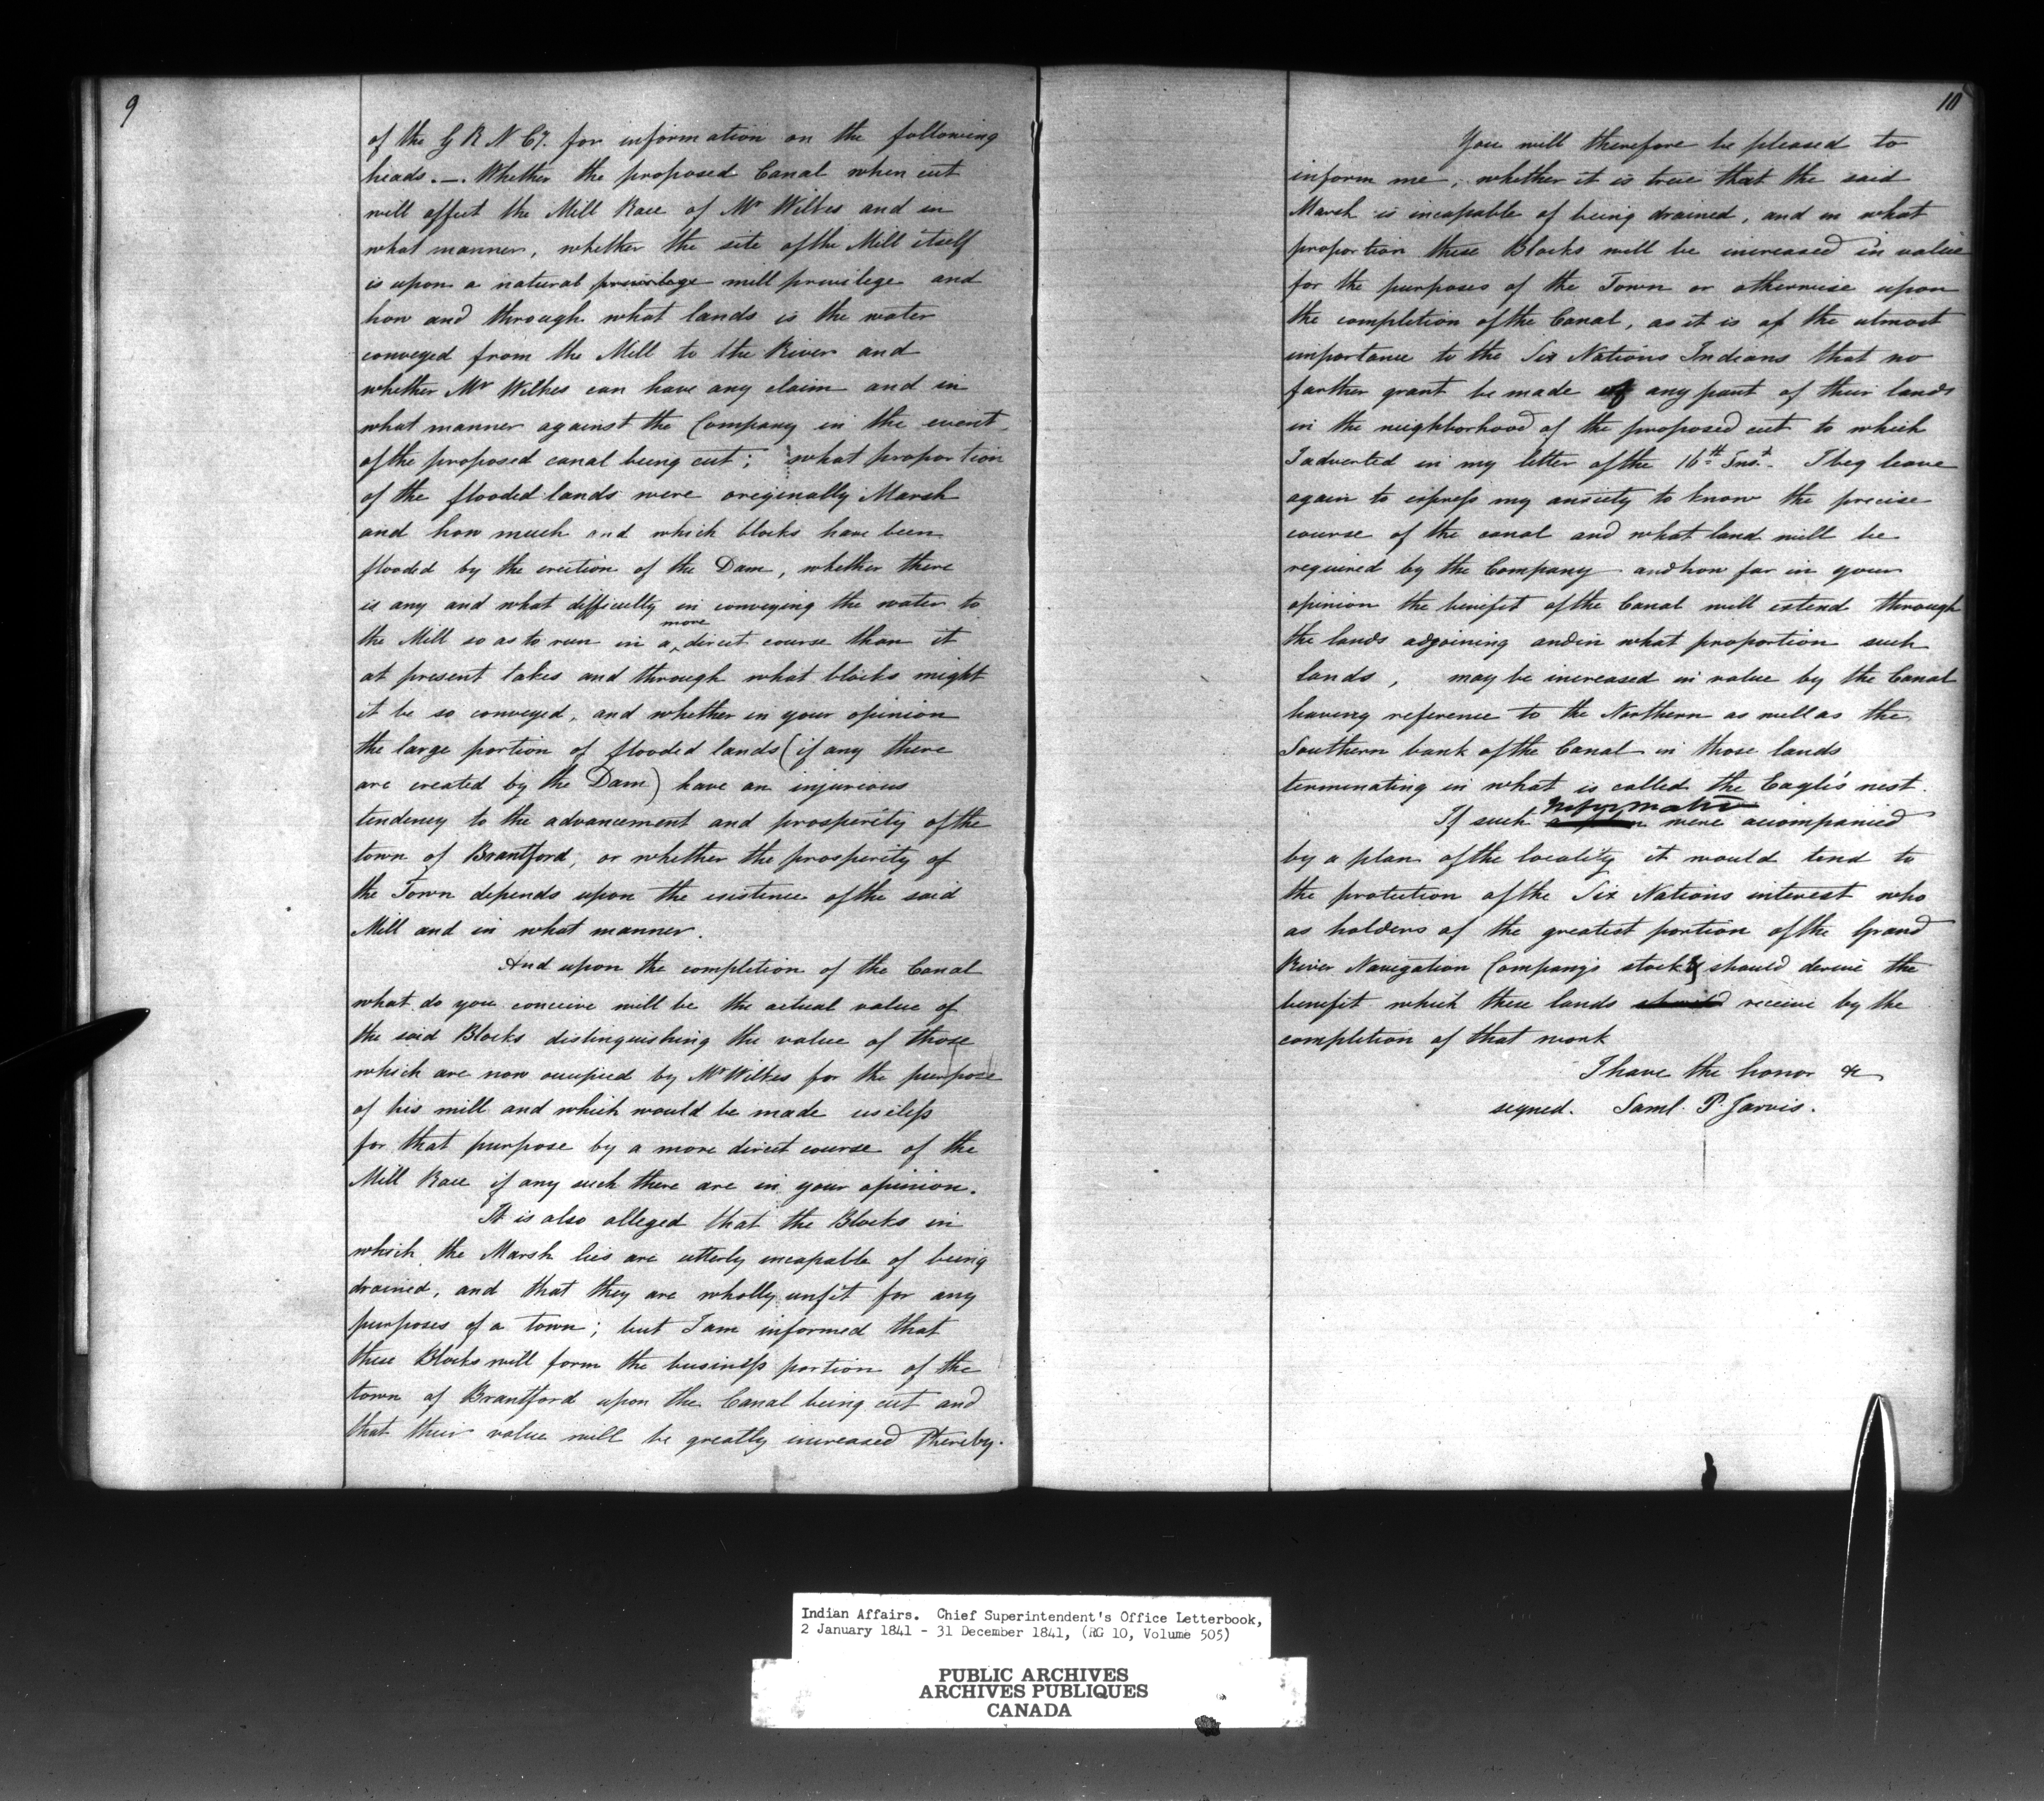 9
of the G R N Cy. for information on the following
heads. —. Whether the proposed Canal when cut
will affect the Mill Race of Mr Wilkes and in
what manner, whether the site of the Mill itself
is upon a natural privilege mill privilege and
how and through what lands is the water
conveyed from the Mill to the River and
whether Mr Wilkes can have any claim and in
what manner against the Company in the event
of the proposed canal being cut; what proportion
of the flooded lands were originally Marsh
and how much and which blocks have been
flooded by the erection of the Dam, whether there
is any and what difficulty in conveying the water to
the Mill so as to run in a more direct course than it
at present takes and through what blocks might
it be so conveyed, and whether in your opinion
the large portion of flooded lands (if any there
are created by the Dam) have an injurious
tendency to the advancement and prosperity of the
town of Brantford, or whether the prosperity of
the Town depends upon the existence of the said
Mill and in what manner.
And upon the completion of the Canal
what do you conceive will be the actual value of
the said Blocks distinguishing the value of those
which are now occupied by Mr Wilkes for the purpose
of his mill and which would be made useless
for that purpose by a more direct course of the
Mill Race if any such there are in your opinion.
It is also alleged that the Blocks in
which the Marsh lies are utterly incapable of being
drained, and that they are wholly unfit for any
purposes of a town; but I am informed that
these Blocks will form the business portion of the
town of Brantford upon the Canal being cut and
that their value will be greatly increased thereby.
10
You will therefore be pleased to
inform me, whether it is true that the said
Marsh is incapable of being drained, and in what
proportion these Blocks will be increased in value
for the purposes of the Town or otherwise upon
the completion of the Canal, as it is of the utmost
importance to the Six Nations Indians that no
farther grant be made of any part of their lands
in the neighborhood of the proposed cut to which
I adverted in my letter of the 16th Inst. I beg leave
again to express my anxiety to know the precise
course of the canal and what land will be
required by the Company and how far in your
opinion the benefit of the Canal will extend through
the lands adjoining and in what proportion such
lands, may be increased in value by the Canal
having reference to the Northern as well as the
Southern bank of the Canal in those lands
terminating in what is called the Eagle's nest.
If such information were accompanied
by a plan of the locality it would tend to
the protection of the Six Nations interest who
as holders of the greatest portion of the Grand
River Navigation Company's stock should derive the
benefit which these lands receive by the
completion of that work
I have the honor &c
signed. Saml. P. Jarvis.
Indian Affairs. Chief Superintendent's Office Letterbook,
2 January 1841 - 31 December 1841, (RG 10, Volume 505)
PUBLIC ARCHIVES
ARCHIVES PUBLIQUES
CANADA